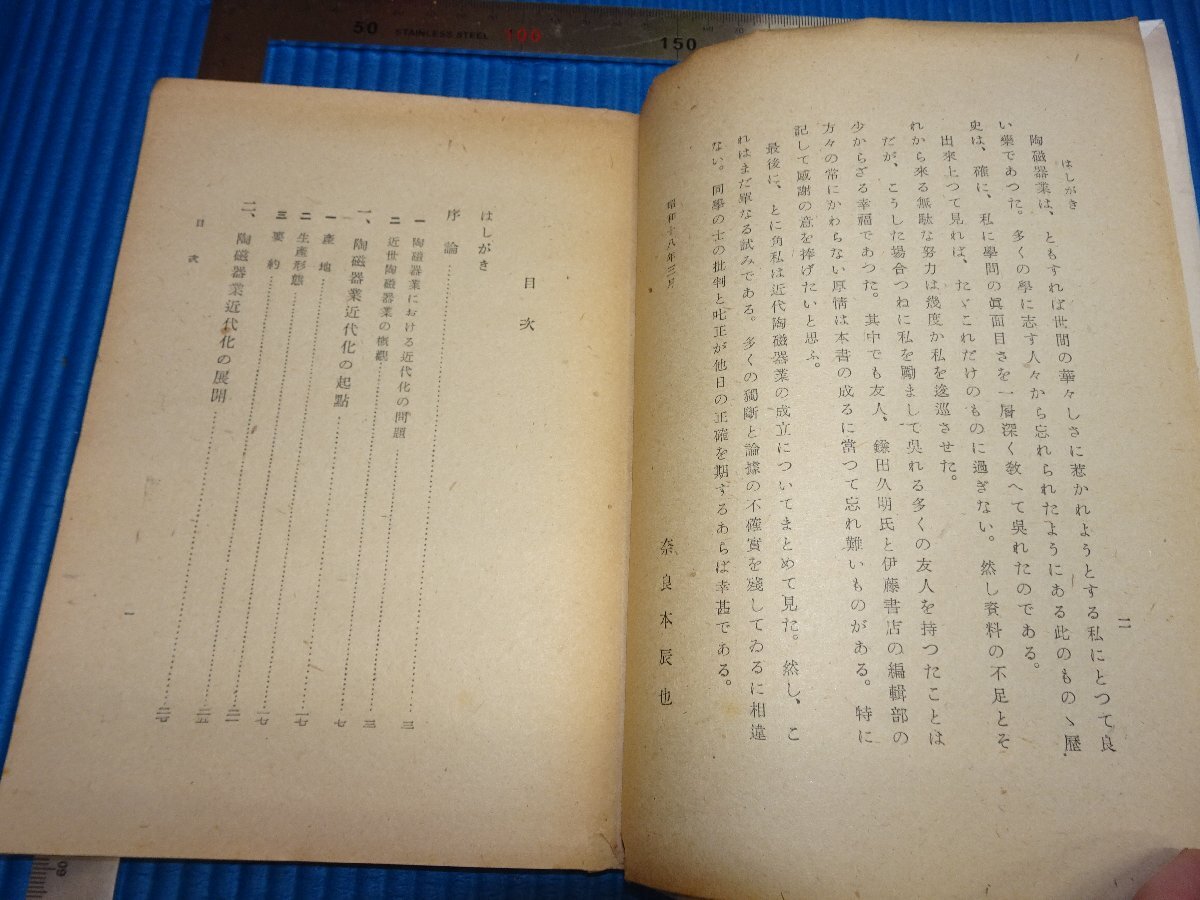 50 STAINLESS STEEL 100 150
はしがき
二
陶磁器業は、ともすれば世間の華々しさに惹かれようとする私にとつて良
い藥であつた。多くの學に志す人々から忘れられたようにある此のものゝ歷
史は、確に、私に學問の眞面目さを一層深く敎へて吳れたのである。
出來上つて見れば、たゞこれだけのものに過ぎない。然し資料の不足とそ
れから來る無駄な努力は幾度か私を逡巡させた。
だが、こうした場合つねに私を勵まして吳れる多くの友人を持つたことは
少からざる幸福であつた。其中でも友人、鎌田久明氏と伊藤書店の編輯部の
方々の常にかわらない厚情は本書の成るに當つて忘れ難いものがある。特に
記して感謝の意を捧げたいと思ふ。
最後に、とに角私は近代陶磁器業の成立についてまとめて見た。然し、こ
れはまだ單なる試みである。多くの獨斷と論據の不確實を殘してゐるに相違
ない。同學の士の批判と叱正が他日の正確を期するあらば幸甚である。
昭和十八年三月
奈良本辰也
目次
はしがき
序論
一 陶磁器業における近代化の問題 三
二 近世陶磁器業の槪觀 三
一、陶磁器業近代化の起點 七
一 產地 一七
二 生產形態
三 要約
二、陶磁器業近代化の展開
目次
一